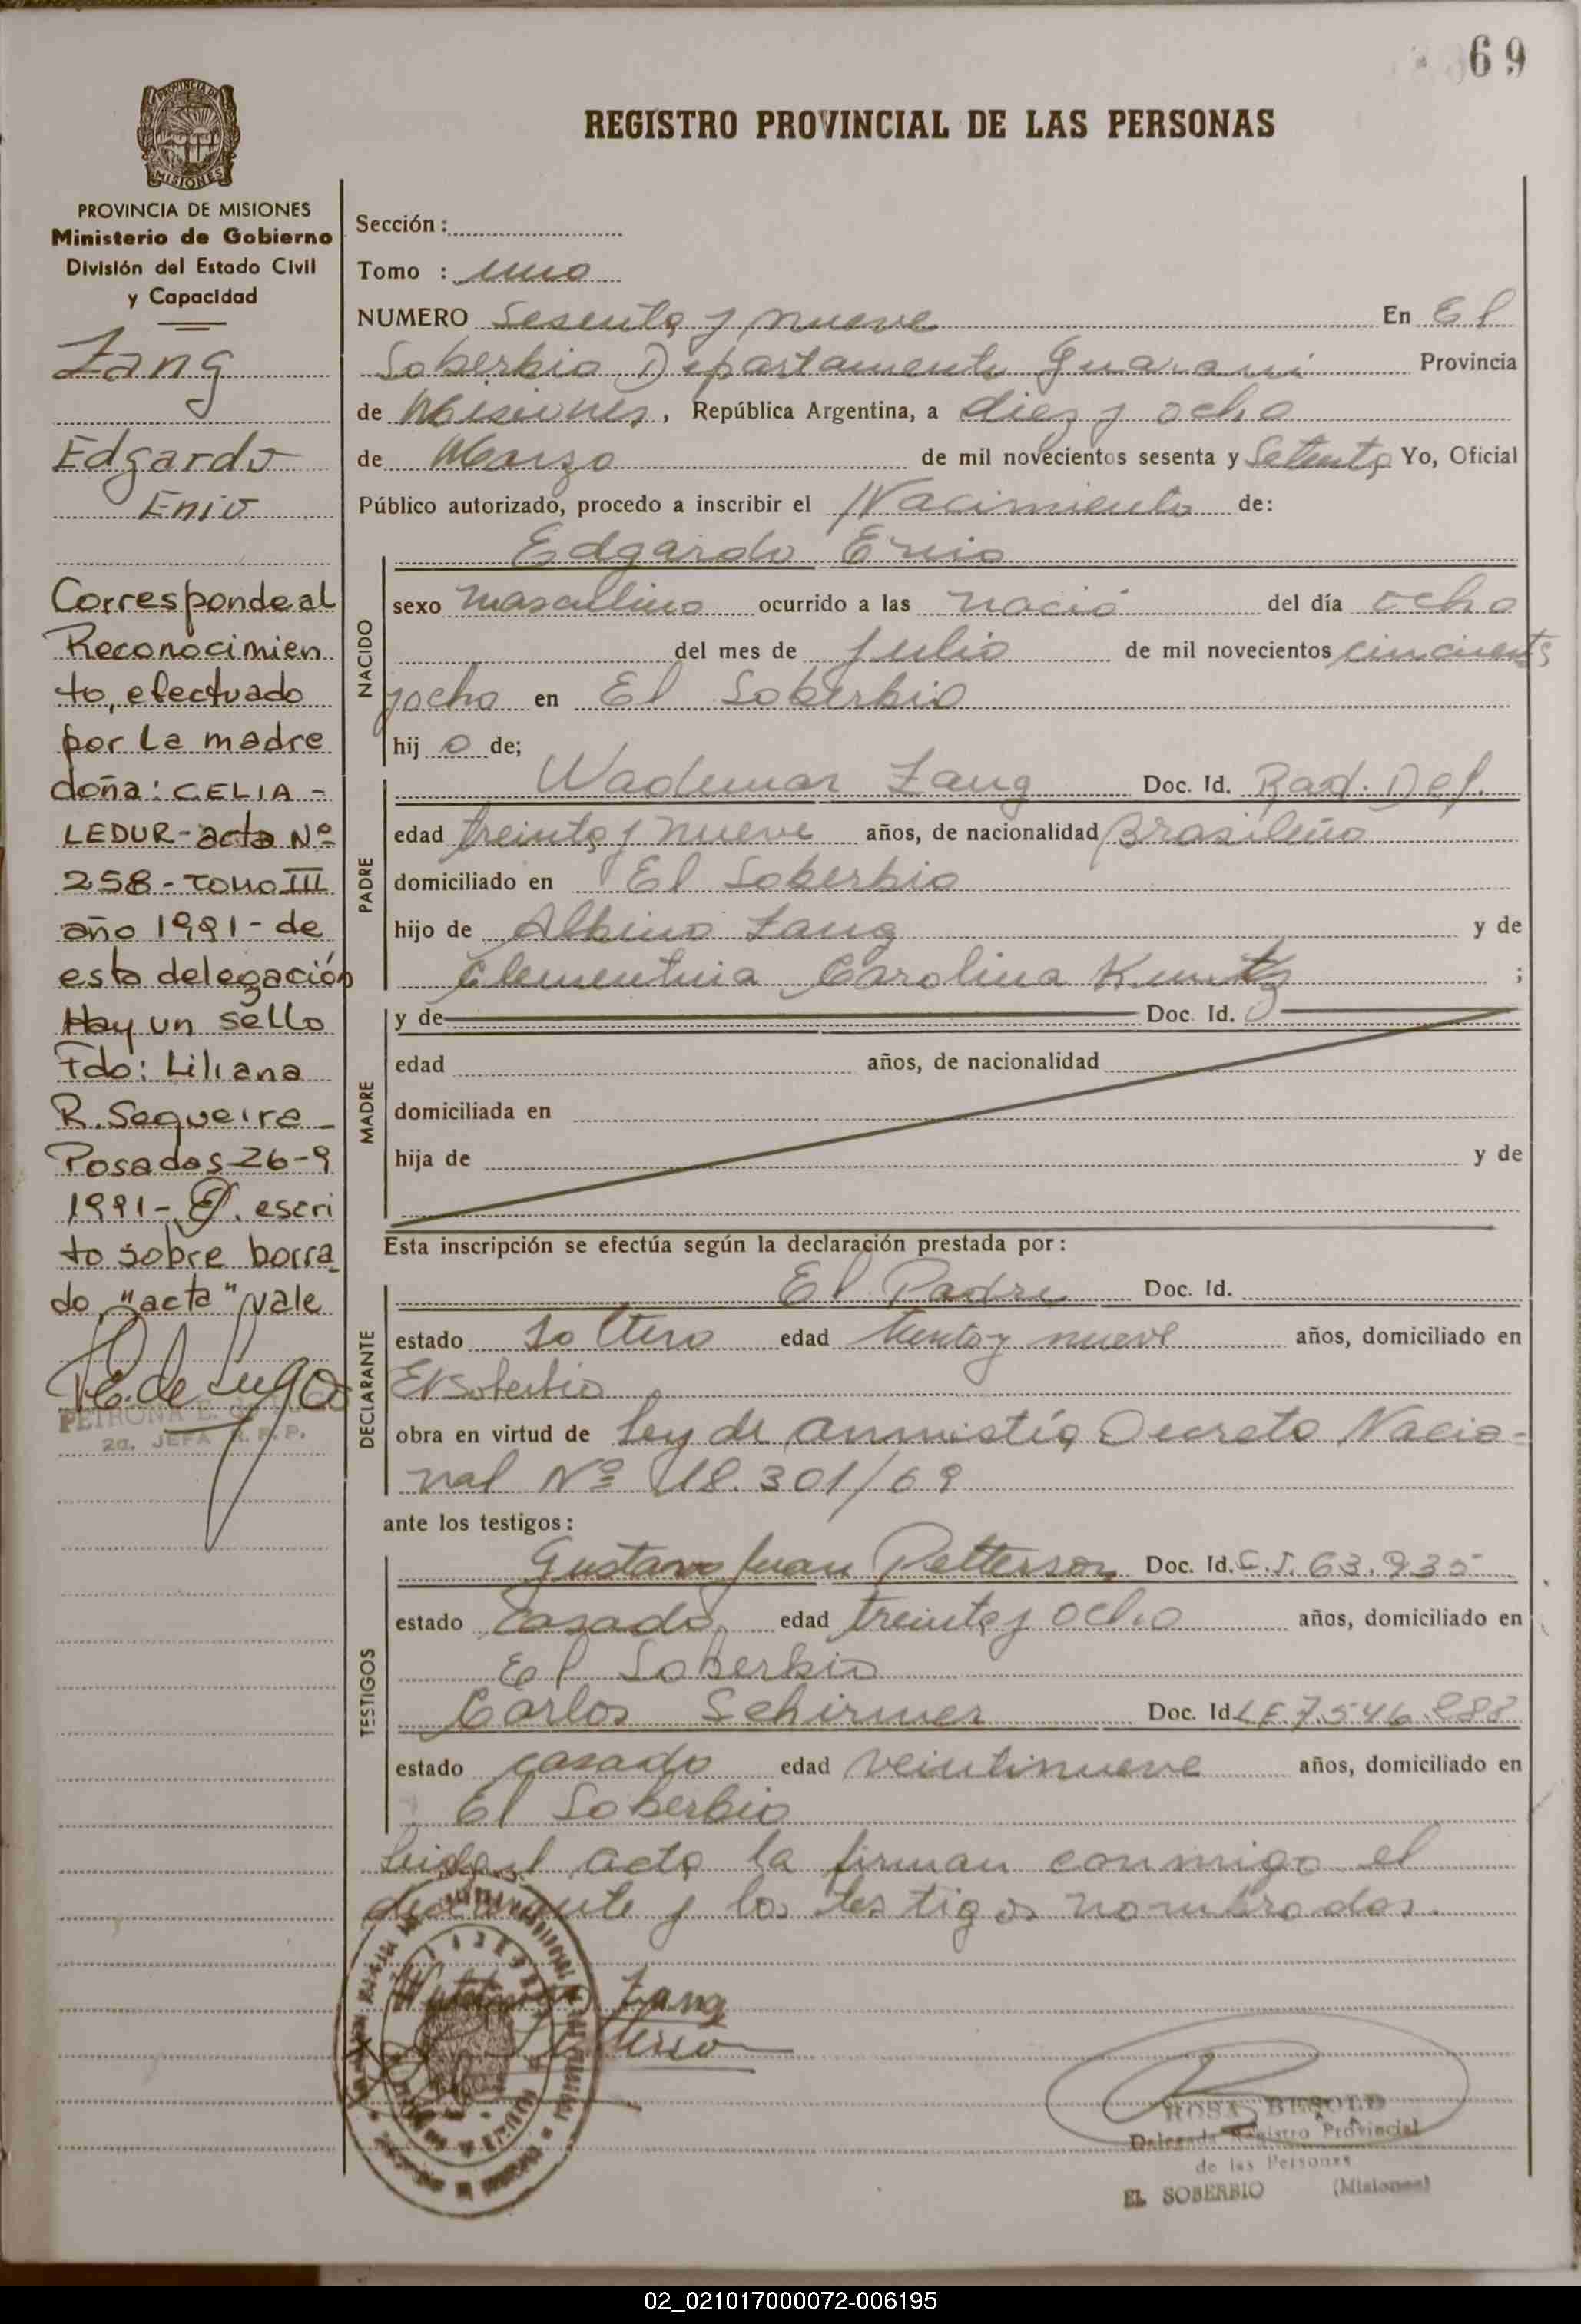 69
PROVINCIA DE
MISIONES
REGISTRO PROVINCIAL DE LAS PERSONAS
PROVINCIA DE MISIONES
Ministerio de Gobierno
División del Estado Civil
y Capacidad
Zang
Edgardo
Enio
Corresponde al
Reconocimien
to, efectuado
por la madre
doña: CELIA -
LEDUR - acta Nº
258 - TOMO III
año 1991 - de
esta delegación
Hay un sello
Fdo: Liliana
R. Sequeira -
Posadas 26-9
1991 - escri
to sobre borra
do "acta" vale
P.E. de Lugo
PETRONA E. de
2a. JEFA R.P.P.
Sección:
Tomo : uno
NUMERO Sesenta y nueve En El
Soberbio Departamento Guarani Provincia
de Misiones, República Argentina, a diez y ocho
de Marzo de mil novecientos sesenta y Setenta Yo, Oficial
Público autorizado, procedo a inscribir el Nacimiento de:
Edgardo Enio
NACIDO
sexo masculino ocurrido a las nació del día ocho
del mes de Julio de mil novecientos cincuenta
yocho en El Soberbio
hij o de;
PADRE
Wademar Zang Doc. Id. Rad. Def.
edad treinta y nueve años, de nacionalidad Brasileña
domiciliado en El Soberbio
hijo de Albino Zang y de
Clementina Carolina Kuntz ;
MADRE
y de Doc. Id.
edad años, de nacionalidad
domiciliada en
hija de y de
Esta inscripción se efectúa según la declaración prestada por:
DECLARANTE
El Padre Doc. Id.
estado soltero edad treinta y nueve años, domiciliado en
El Soberbio
obra en virtud de Ley de Amnistía Decreto Nacio-
nal Nº 18.301/69
ante los testigos:
TESTIGOS
Gustavo Juan Petterson Doc. Id. C.I. 63.935
estado casado edad treinta y ocho años, domiciliado en
El Soberbio
Carlos Schirmer Doc. Id. LE 7.546.888
estado casado edad veintinueve años, domiciliado en
El Soberbio
leida el acta la firman conmigo el
declarante y los testigos nombrados.
Zang
ROSA BESOLD
Delegada Registro Provincial
de las Personas
EL SOBERBIO (Misiones)
02_021017000072-006195